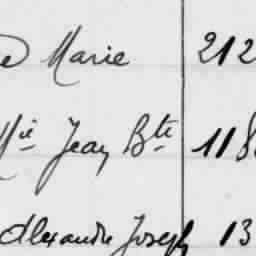 de Marie 212
Mie Jean Bte 118
Alexandre Joseph 13